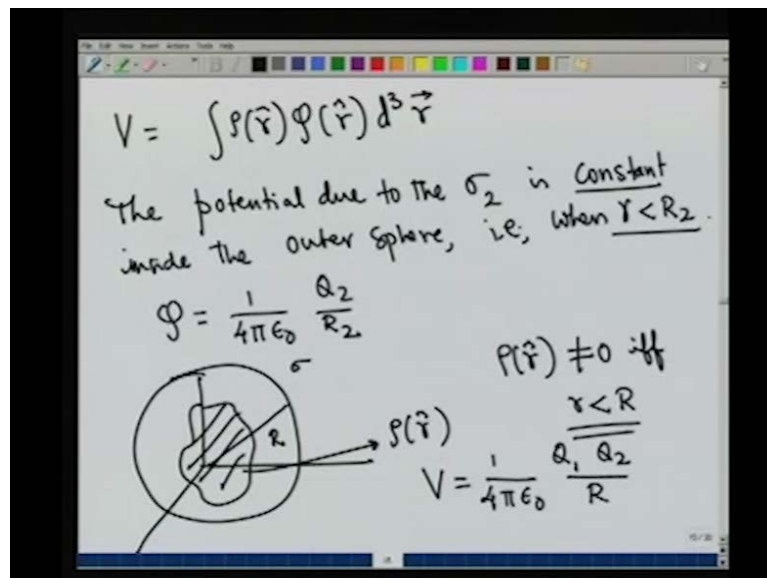 File Edit View Insert Actions Tools Help
V = ∫ρ(r̂)φ(r̂)d³r⃗
The potential due to the σ₂ is constant
inside the outer sphere, i.e, when r<R₂.
φ = 1/4πϵ₀ Q₂/R₂
σ
R
ρ(r̂)
ρ(r̂) ≠0 iff
r<R
V = 1/4πϵ₀ Q₁ Q₂/R